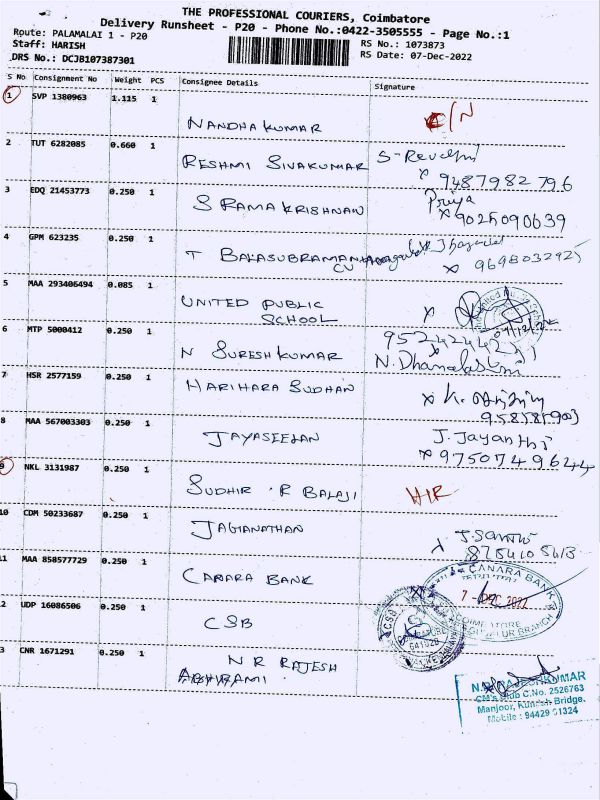 THE PROFESSIONAL COURIERS, Coimbatore
Delivery Runsheet - P20 - Phone No.:0422-3505555 - Page No.:1
Route: PALAMALAI 1 - P20
Staff: HARISH
DRS No.: DCJB107387301
RS No.: 1073873
RS Date: 07-Dec-2022
S No Consignment No Weight PCS Consignee Details Signature
1 SVP 1380963 1.115 1
NANDHA KUMAR
2 TUT 6282085 0.660 1
RESHMI SIVAKUMAR
9487982796
3 EDQ 21453773 0.250 1
S RAMA KRISHNAN Priya
9025090639
4 GPM 623235 0.250 1
T BALASUBRAMAN
5 MAA 293406494 0.085 1
UNITED PUBLIC
SCHOOL
6 MTP 5000412 0.250 1
N SURESHKUMAR
7 HSR 2577159 0.250 1
HARIHARA SUDHAN
8 MAA 567003303 0.250 1
JAYASEELAN J. Jayanthi
9750749644
9 NKL 3131987 0.250 1
SUDHIR . R BALAJI
10 CDM 50233687 0.250 1
JAGANATHAN
11 MAA 858577729 0.250 1
CANARA BANK
CANARA BANK
7 - DEC 2022
COIMBATORE
2 UDP 16086506 0.250 1
CSB
3 CNR 1671291 0.250 1
N R RAJESH
ABHIRAMI
CM's Club C.No. 2526763
Manjoor, Kundah Bridge.
Mobile : 94429 61324